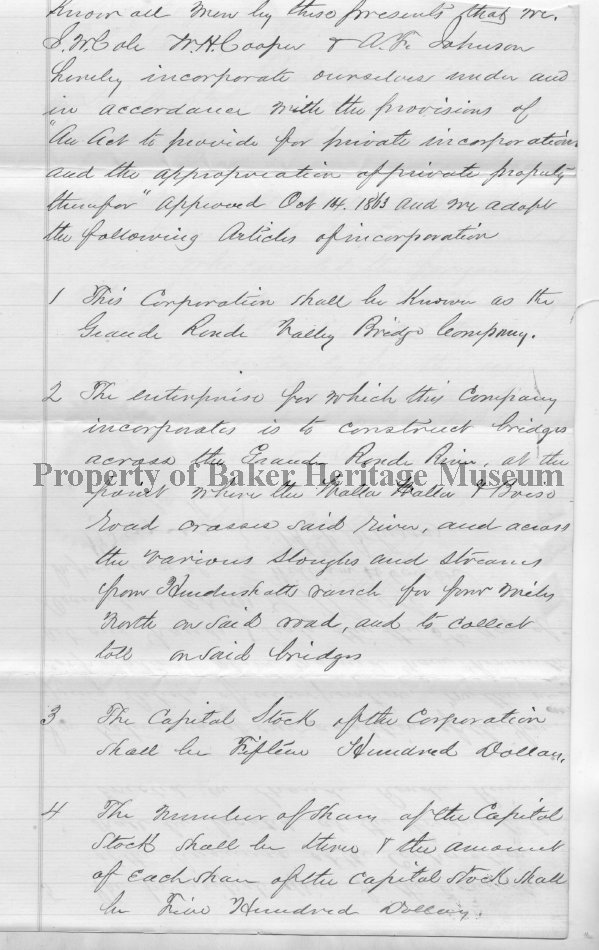 Know all Men by these presents that we.
S. W. Cole W. H. Cooper & A. F. Johnson
hereby incorporate ourselves under and
in accordance with the provisions of
"An Act to provide for private incorporations
and the appropriation of private property
therefor" approved Oct 14. 1863 and we adopt
the following Articles of incorporation
1 This Corporation shall be Known as the
Grande Ronde Valley Bridge Company.
2 The enterprise for which this Company
incorporates is to construct bridges
across the Grande Ronde River, at the
Property of Baker Heritage Museum
point where the Walla Walla & Boise
road crosses said river, and across
the various sloughs and streams
from ranch for four miles
North on said road, and to collect
toll on said bridges
3 The Capital Stock of the Corporation
shall be Fifteen Hundred Dollars.
4 The number of shares of the Capital
Stock shall be three & the amount
of each share of the capital stock shall
be Five Hundred Dollars.